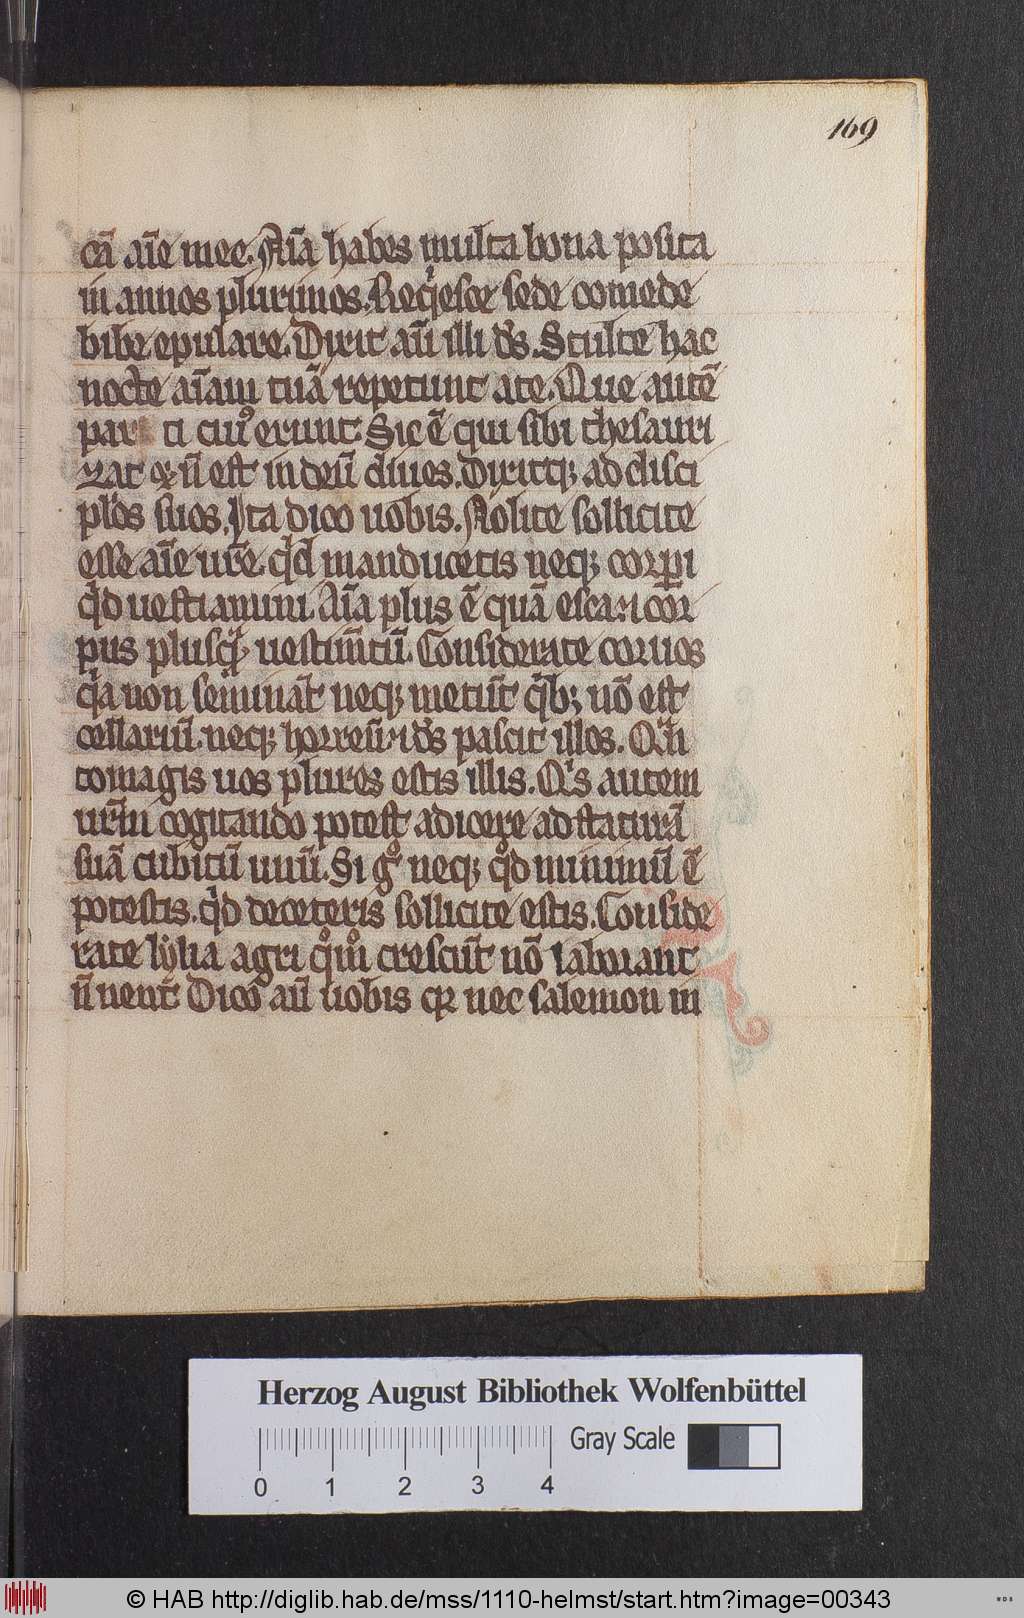 169
cā aīe mee. Aīa habes multa bona posita
in annos plurimos. Reqͥesce sede comede
bibe epulare. Dixit aū illi ds̄. Stulte hac
nocte aīam tuā repetunt a te. Que autē
par ti cuiꝰ erunt. Sic ē qui sibi thesauri
zat ⁊ n̄ est in deū diues. Dixitqꝫ ad disci
pl̄os suos. Ita dico uobis. Nolite sollicite
esse aīe ur̄e. qͥd manducetis neqꝫ corp̄i
qͥd uestiamini. Aīa plus ē quā esca. ⁊ cor
pus plusqͣ uestim̄tū. Considerate coruos
qͥa non semināt neqꝫ metūt qͥbꝫ nō est
cellariū. neqꝫ horreū. ⁊ ds̄ pascit illos. Qͣn
tomagis uos plures estis illis. Qͥs autem
ur̄m cogitando potest adicere ad staturā
suā cubitū unū. Si gͦ neqꝫ qͦd minimū ē
potestis. qͥd deceteris solliciti estis. Conside
rate lylia agri qͦmͦ crescūt nō laborant
n̄ nent. Dico aū uobis qꝛ nec salemon in
Herzog August Bibliothek Wolfenbüttel
Gray Scale
0 1 2 3 4
© HAB http://diglib.hab.de/mss/1110-helmst/start.htm?image=00343